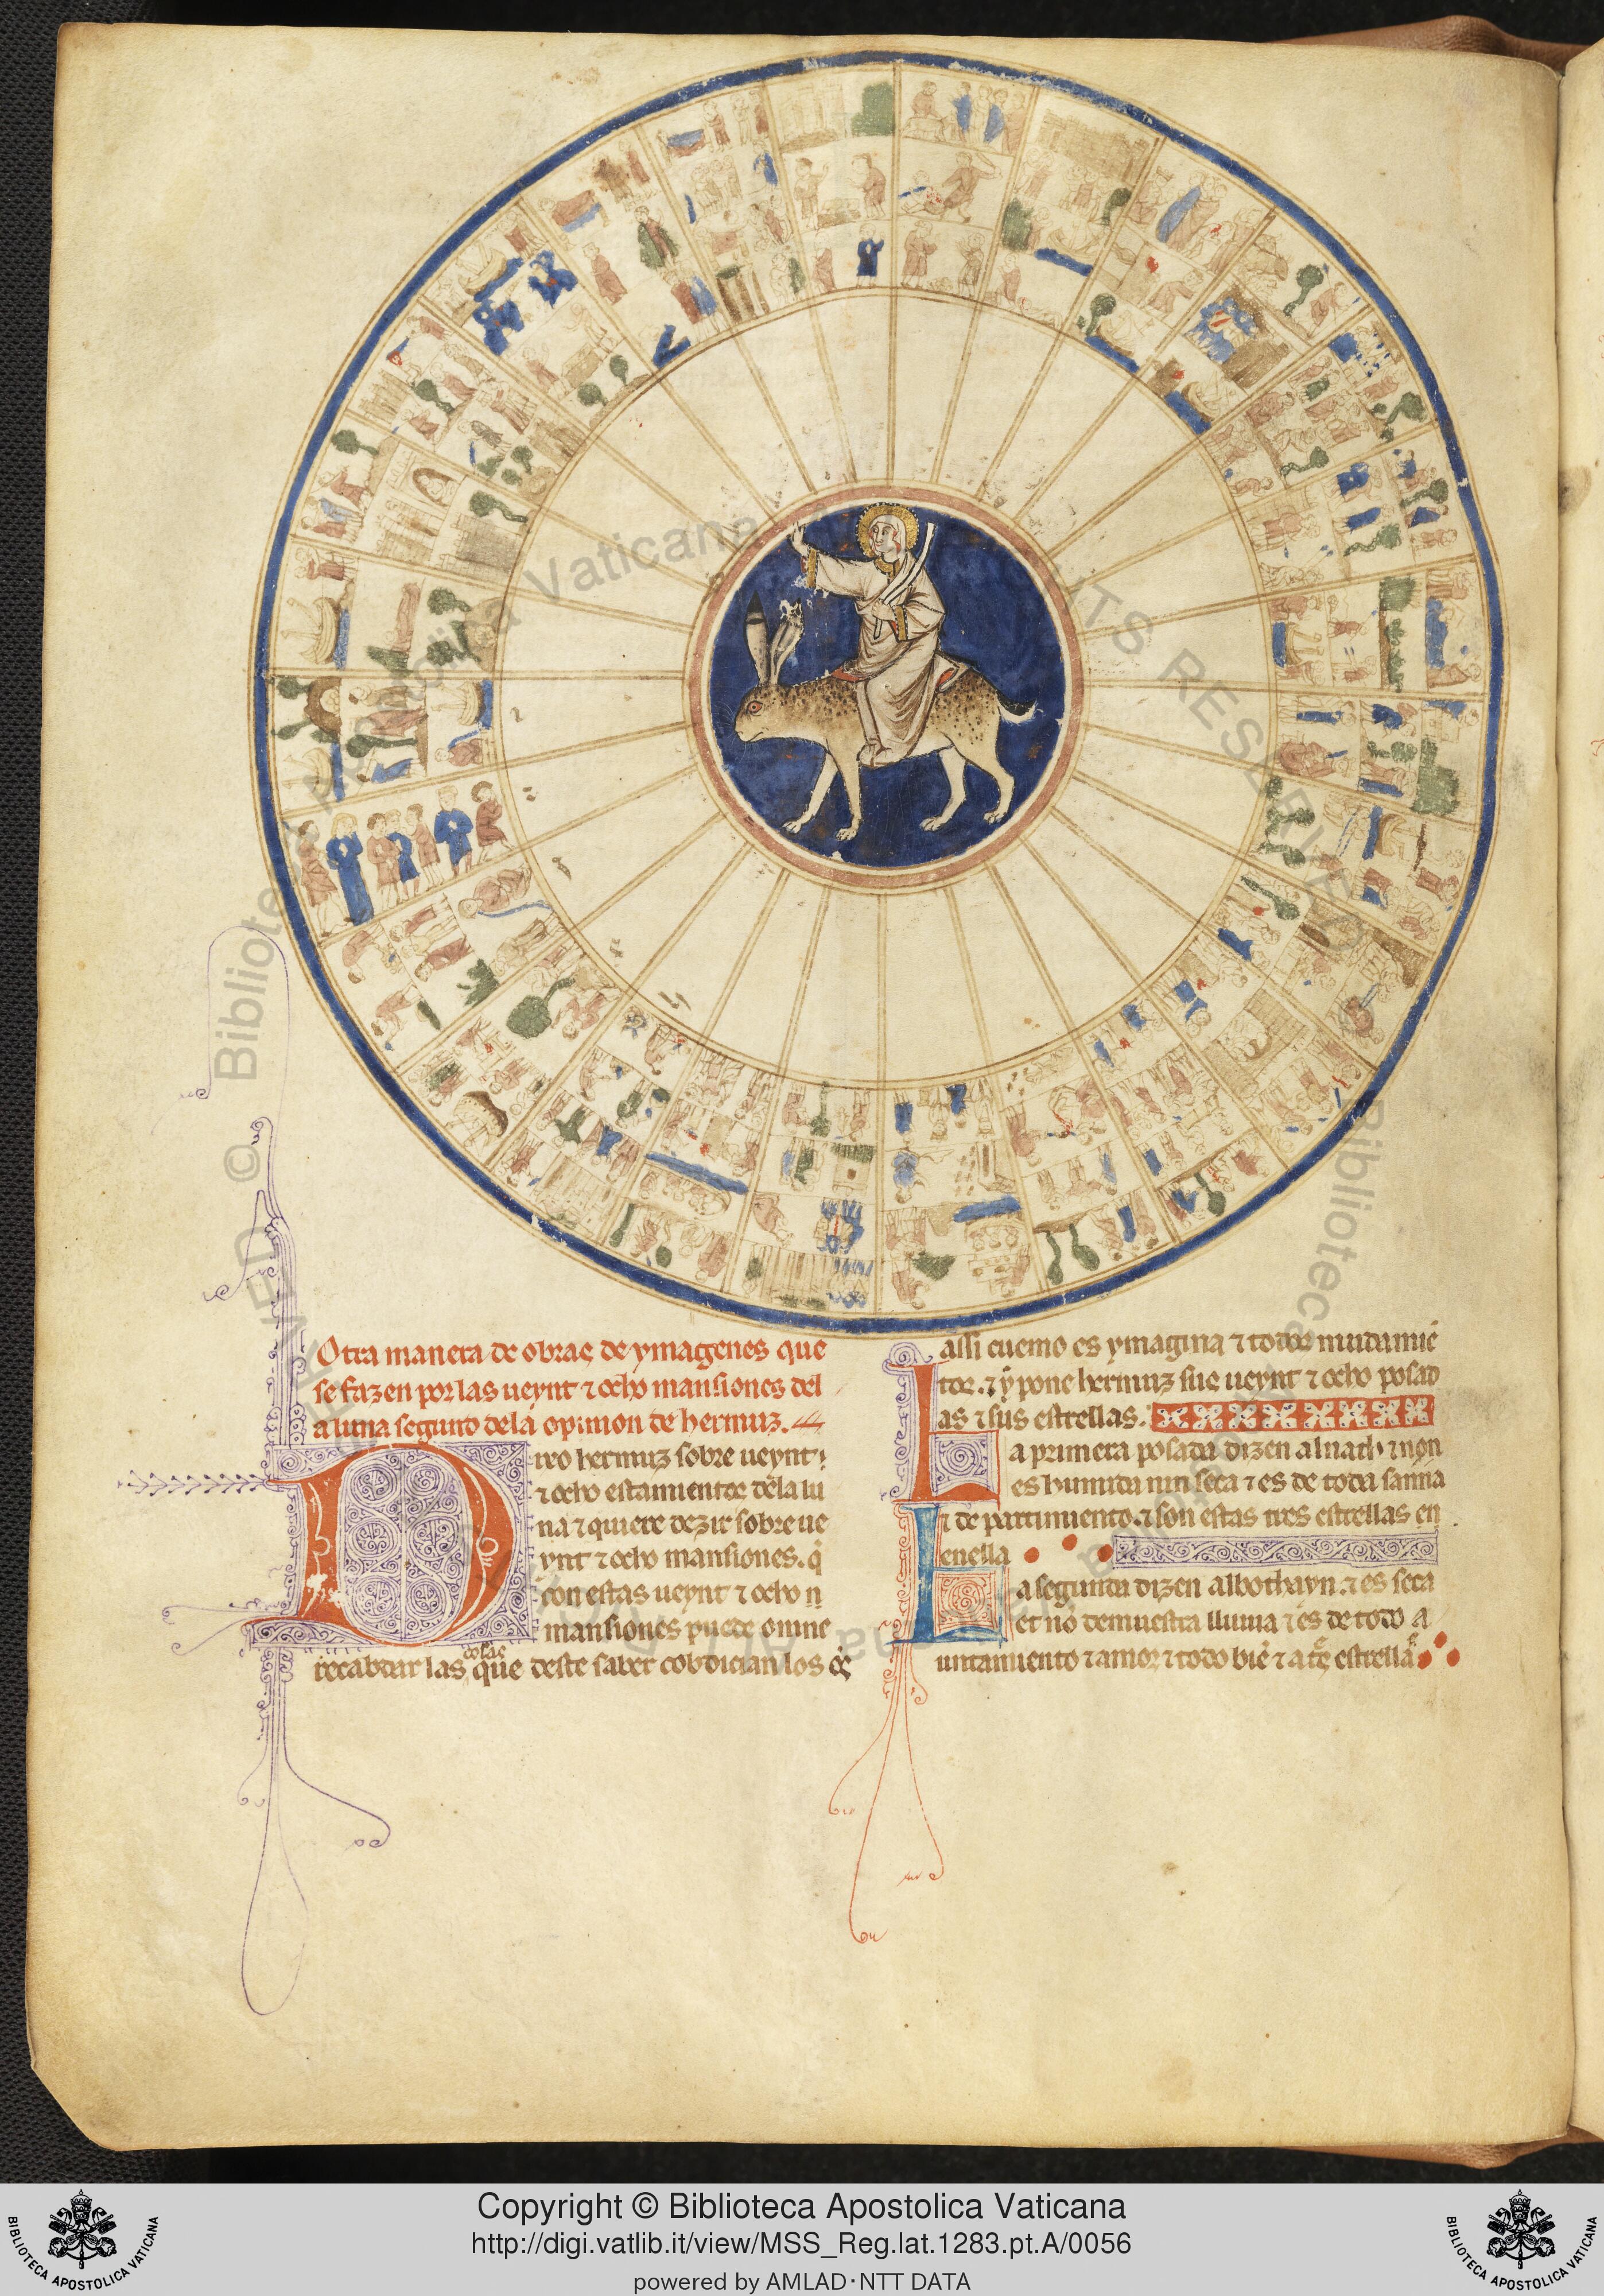 Otra manera de obras de ymagenes que
se fazen por las ueynt ⁊ ocho mansiones del
a luna segund dela opinion de hermuz.
Dixo hermuz sobre ueynt
⁊ ocho estamientos dela lu
na ⁊ quiere dezir sobre ue
ynt ⁊ ocho mansiones. q̇
con estas ueynt ⁊ ocho
mansiones puede omne
cosas
recabdar las que deste saber cobdician los
assi cuemo es ymagina ⁊ todos mudamiē
tos. ⁊ y pone hermuz sus ueynt ⁊ ocho posad
as ⁊ sus estrellas.
La primera posada dizen alnath ⁊ non
es humida nin seca ⁊ es de toda sanna
⁊ de partimiento. ⁊ son estas tres estrellas en
enella
La segunda dizen albothayn. ⁊ es seca
et nō demuestra lluuia ⁊ es de todo a
untamiento ⁊ amor ⁊ todo biē ⁊ a estrellas
© Biblioteca Apostolica Vaticana ALL RIGHTS RESERVED
Copyright © Biblioteca Apostolica Vaticana
http://digi.vatlib.it/view/MSS_Reg.lat.1283.pt.A/0056
powered by AMLAD·NTT DATA
BIBLIOTECA APOSTOLICA VATICANA
BIBLIOTECA APOSTOLICA VATICANA